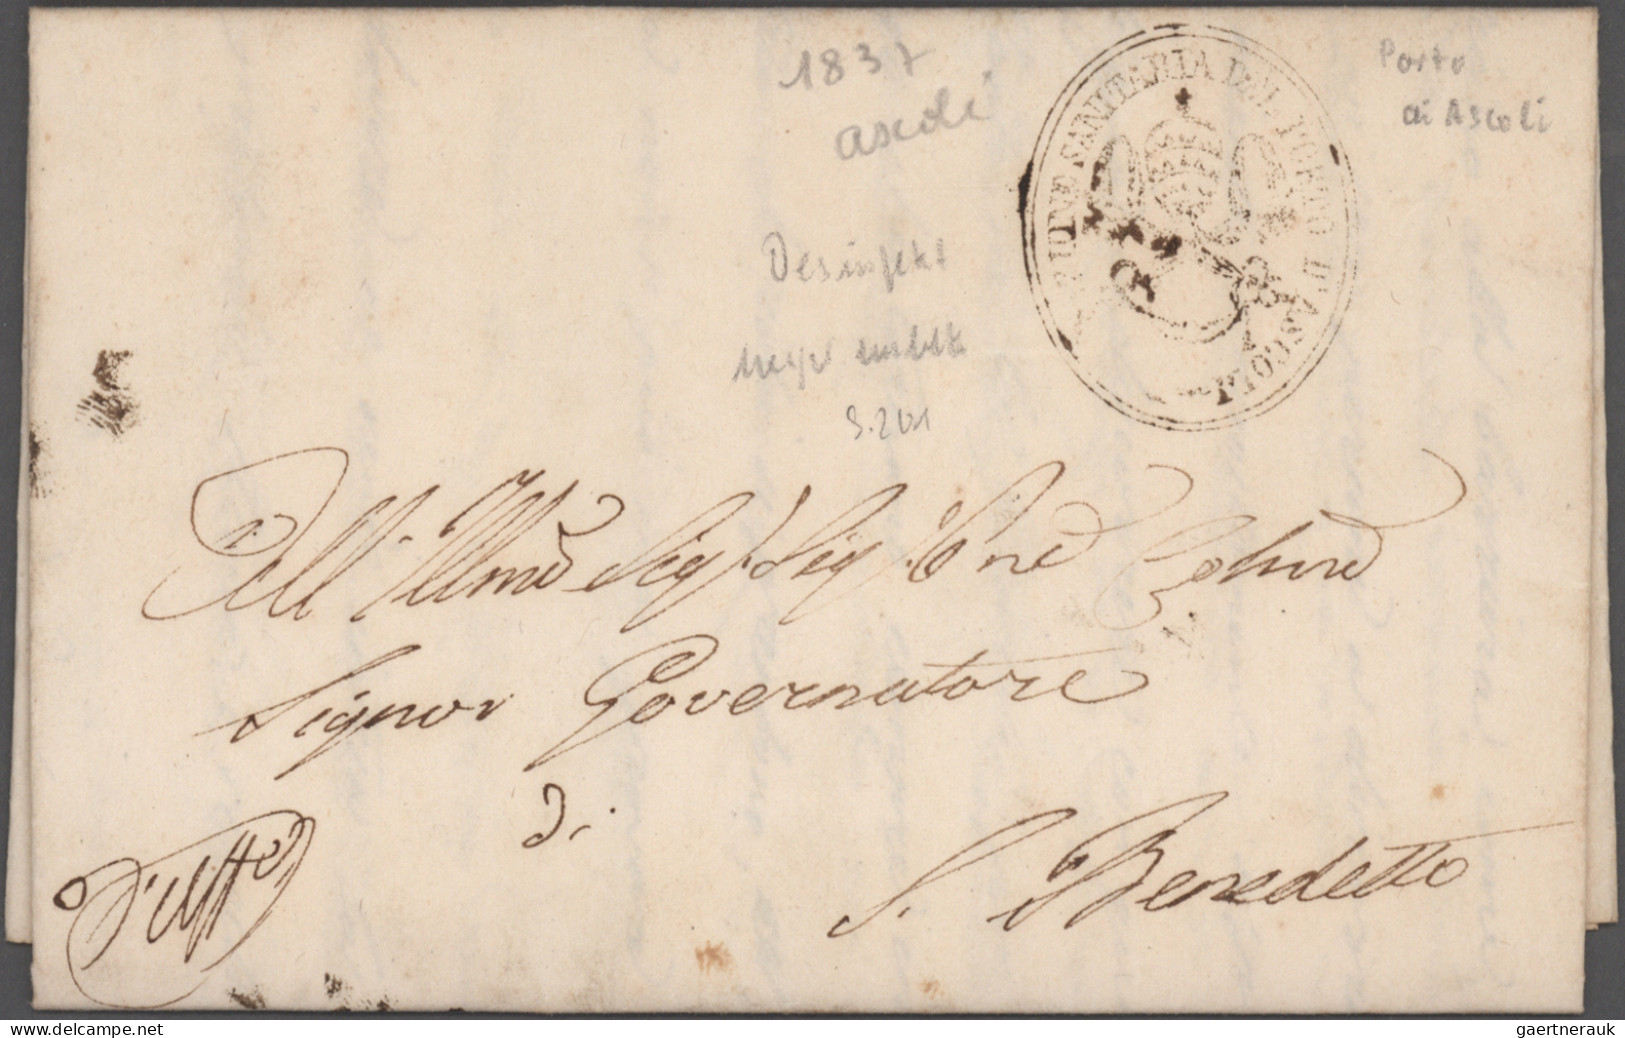 1837
ascoli
Porto
di Ascoli
IONE SANITARIA DEL PORTO D'ASCOLI
Desinfekt
S. 201
All' Illmo Sig. Sig. Pne Colmo
Signor Governatore
Di
S. Benedetto
D'Uffo
gaertnerauk@delcampe.net